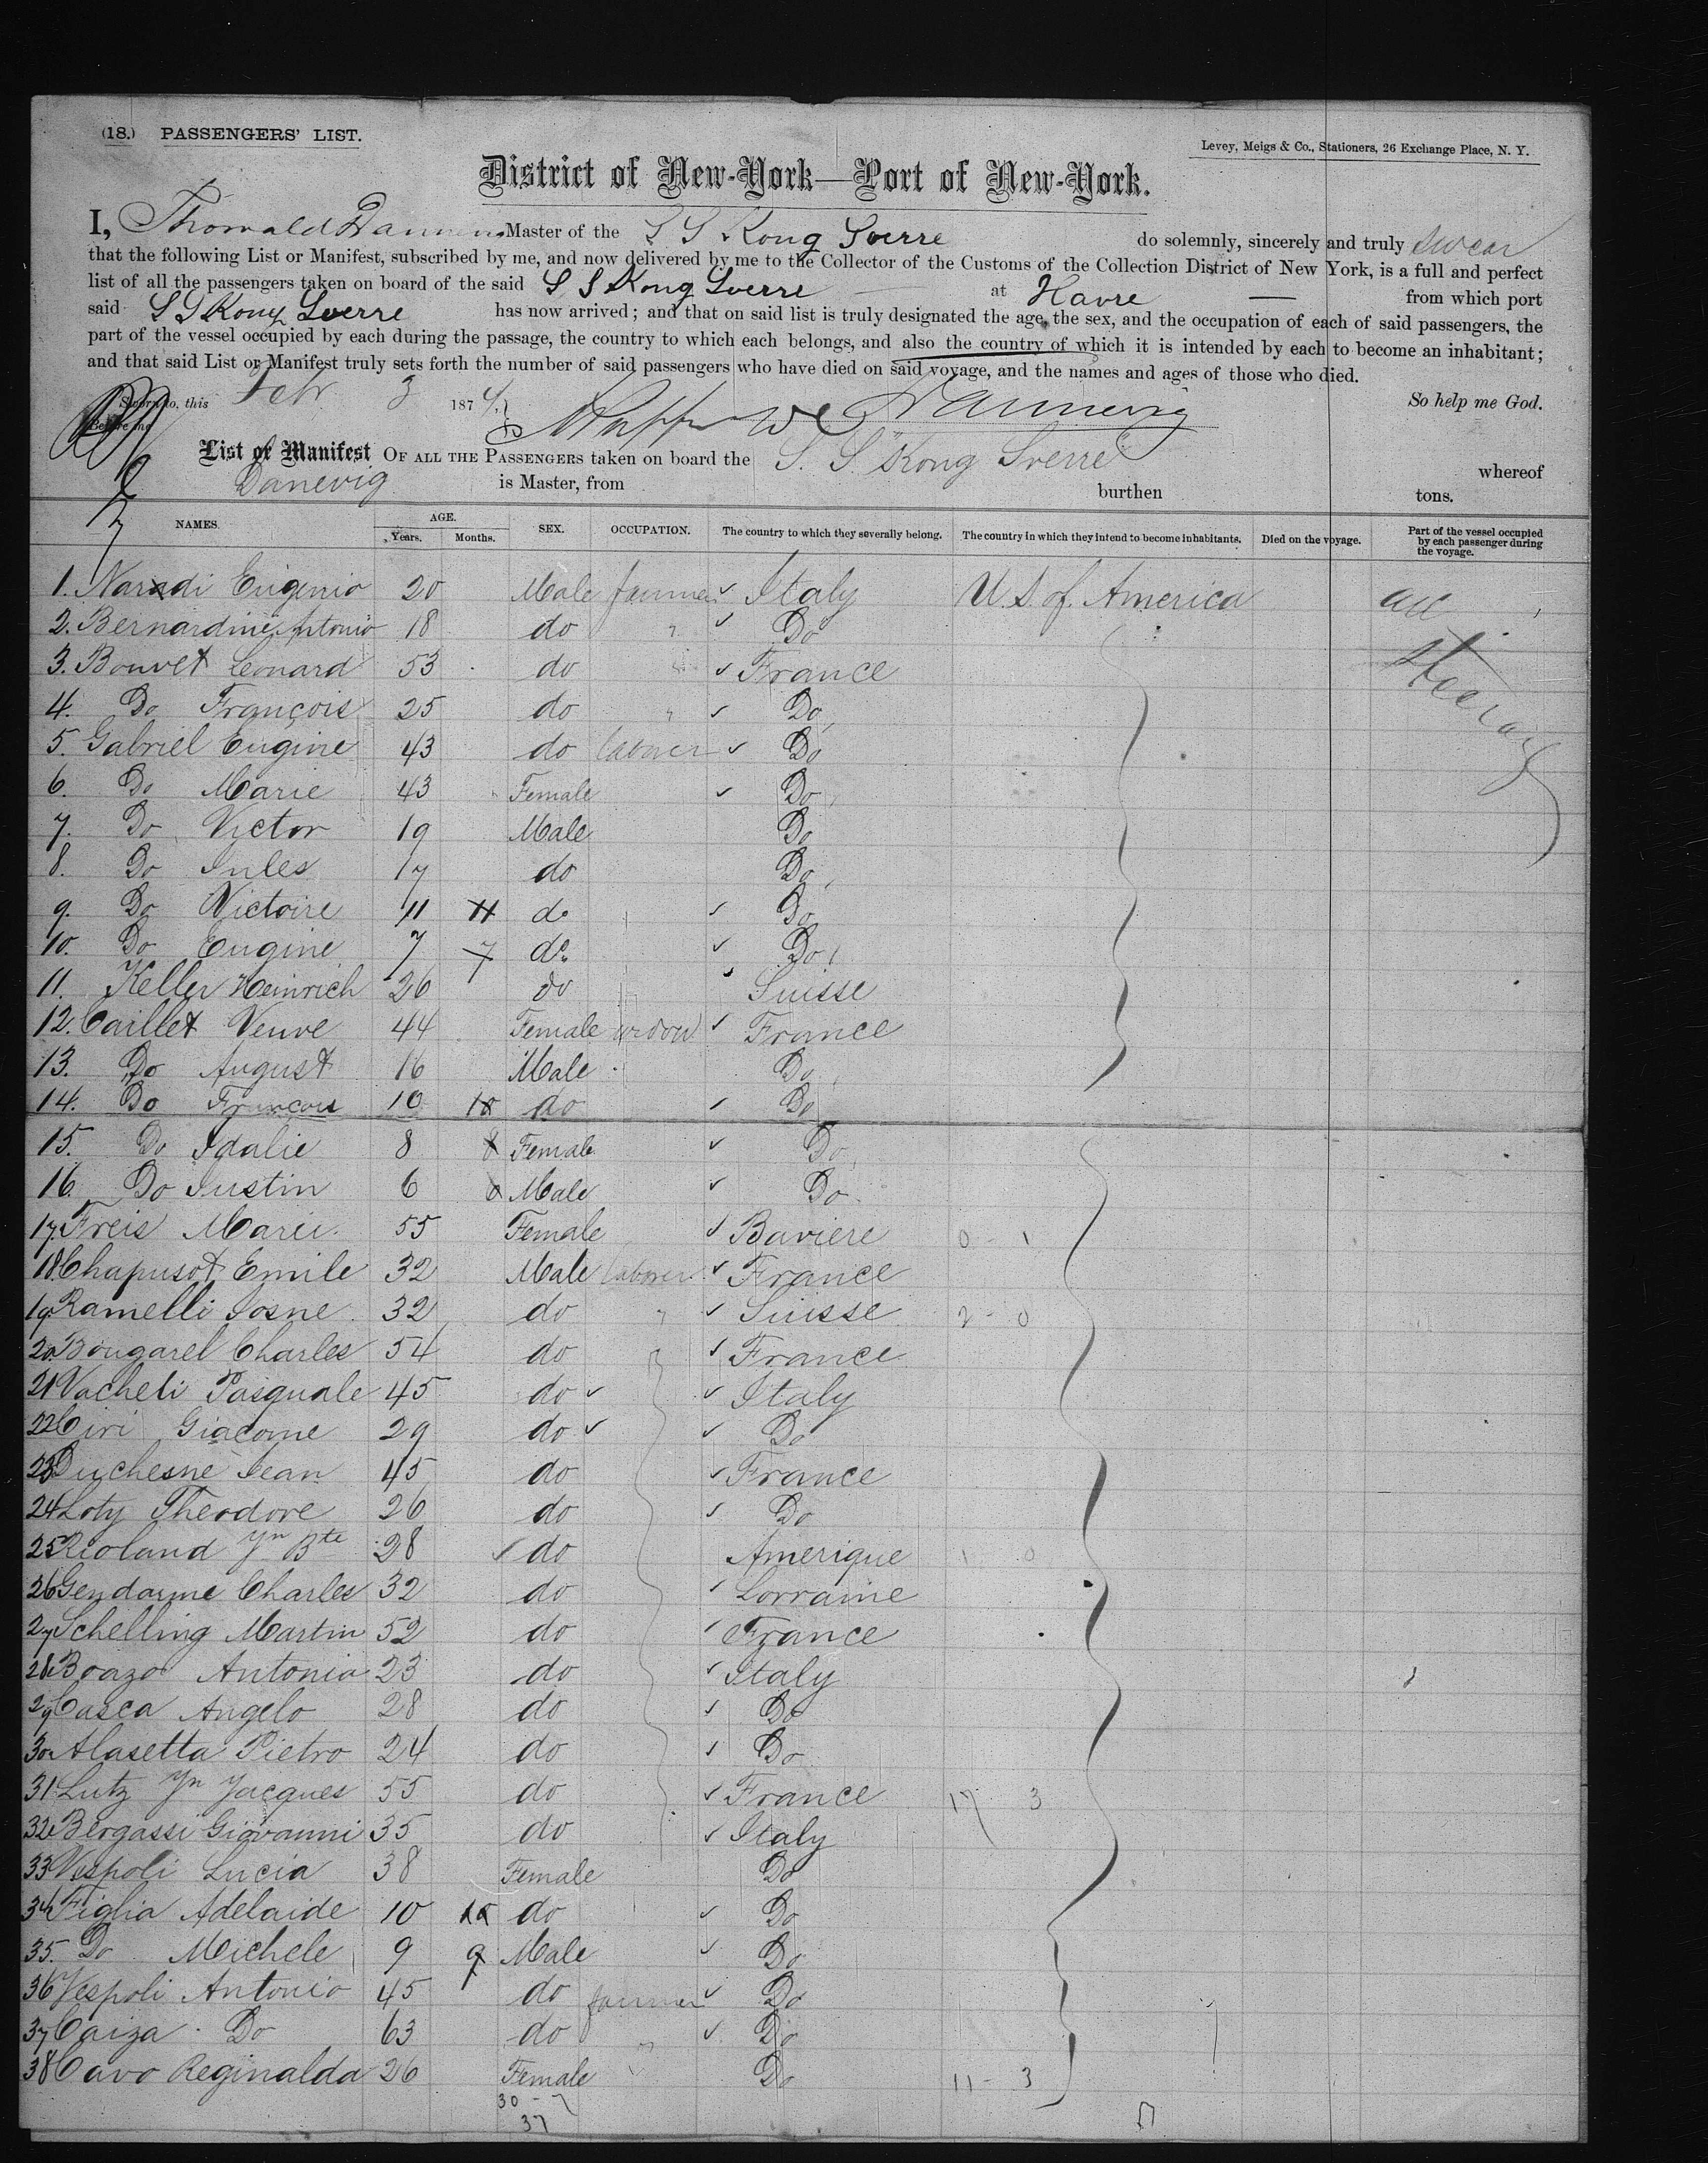 (18.) PASSENGERS' LIST.
Levey, Meigs & Co., Stationers, 26 Exchange Place, N. Y.
District of New-York—Port of New-York.
I, Thorwald Master of the S S Kong Sverre do solemnly, sincerely and truly swear
that the following List or Manifest, subscribed by me, and now delivered by me to the Collector of the Customs of the Collection District of New York, is a full and perfect
list of all the passengers taken on board of the said S S Kong Sverre at Havre from which port
said S S Kong Sverre has now arrived; and that on said list is truly designated the age, the sex, and the occupation of each of said passengers, the
part of the vessel occupied by each during the passage, the country to which each belongs, and also the country of which it is intended by each to become an inhabitant;
and that said List or Manifest truly sets forth the number of said passengers who have died on said voyage, and the names and ages of those who died.
Sworn to, this Feb 3 1874 So help me God.
Before me
List or Manifest OF ALL THE PASSENGERS taken on board the S. S. "Kong Sverre" whereof
Danevig is Master, from burthen tons.
NAMES. AGE. Years. Months. SEX. OCCUPATION. The country to which they severally belong. The country in which they intend to become inhabitants. Died on the voyage. Part of the vessel occupied by each passenger during the voyage.
1. Narodi Eugenio 20 Male farmer Italy U. S. of America all
2. Bernardini Antonio 18 do " Do
3. Bouvet Leonard 53 do " France steerage
4. Do François 25 do " Do
5. Gabriel Eugine 43 do laborer Do
6. Do Marie 43 Female Do
7. Do Victor 19 Male Do
8. Do Jules 17 do Do
9. Do Victoire 11 11 do Do
10. Do Eugine 7 7 do Do
11. Keller Heinrich 26 do Suisse
12. Caillet Veuve 44 Female widow France
13. Do August 16 Male Do
14. Do François 10 10 do Do
15. Do Idalie 8 8 Female Do
16. Do Justin 6 6 Male Do
17 Freis Marie 55 Female Baviere 0 - 1
18 Chapusot Emile 32 Male laborer France
19 Ramelli Josne 32 do " Suisse 2 - 0
20 Bougarel Charles 54 do France
21 Vacheli Pasquale 45 do Italy
22 Ciri Giacome 29 do Do
23 Duchesne Jean 45 do France
24 Loty Theodore 26 do Do
25 Rioland Jn Bte 28 do Amerique 1 0
26 Gendarme Charles 32 do Lorraine
27 Schelling Martin 52 do France
28 Boazo Antonio 23 do Italy
29 Casca Angelo 28 do Do
30 Alasetta Pietro 24 do Do
31 Lutz Jn Jacques 55 do France 17 3
32 Bergassi Giovanni 35 do Italy
33 Vespoli Lucia 38 Female Do
34 Figlia Adelaide 10 10 do Do
35. Do Michele 9 9 Male Do
36 Vespoli Antonio 45 do farmer Do
37 Caiza Do 63 do " Do
38 Cavo Reginalda 26 Female " Do 11 - 3
30 - 7
37